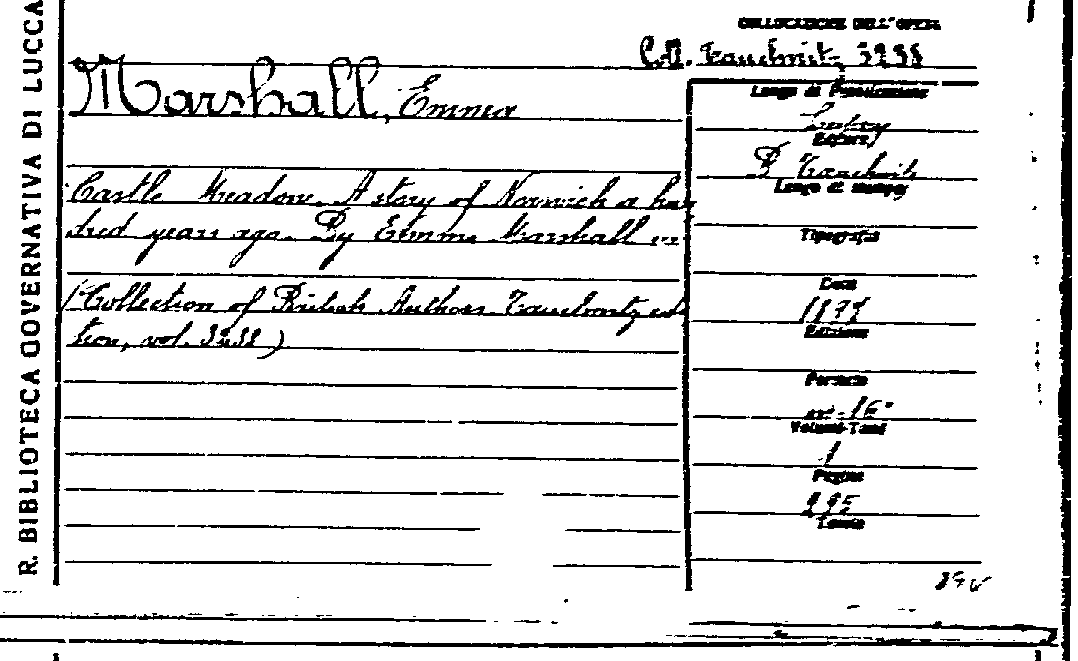 R. BIBLIOTECA GOVERNATIVA DI LUCCA
COLLOCAZIONE DELL'OPERA
Coll. Tauchnitz, 3238
Marshall, Emma
Castle Meadow. A story of Norwich a hun
dred years ago. By Emma Marshall
(Collection of British Authors Tauchnitz edi
tion, vol. 3238)
Luogo di Pubblicazione
Editore
B. Tauchnitz
Luogo di stampa
Tipografia
Data
Edizione
Formato
in-16°
Volumi-Tomi
1
Pagine
295